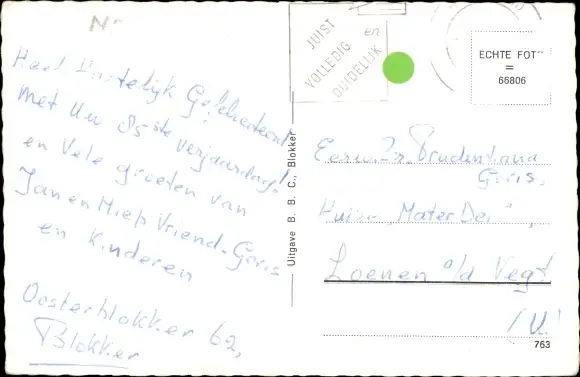 JUIST
en
VOLLEDIG
DUIDELIJK
ECHTE FOTO
=
66806
Heel Hartelijk Gefeliciteerd
met Uw 85ste verjaardag!
en Vele groeten van
Jan en Miep Vriend-Goris
en Kinderen
Oosterblokker 62,
Blokker
Uitgave B. B. C., Blokker
Eerw. Zr. Prudentiana
Goris,
Huize "Mater Dei",
Loenen a/d Vegt
(U.)
763